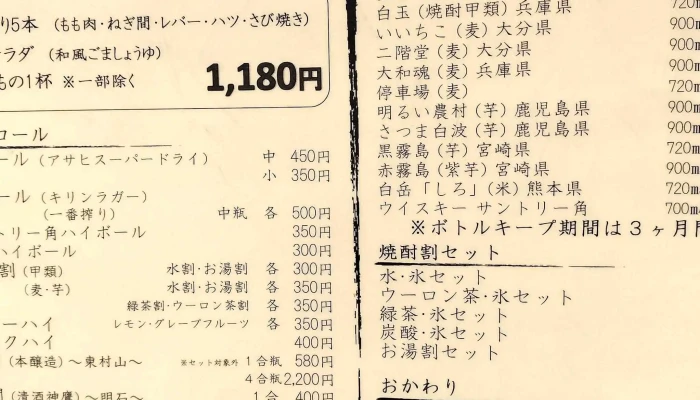 り5本 (もも肉・ねぎ間・レバー・ハツ・さび焼き)
ラダ (和風ごましょうゆ)
もの1杯 ※一部除く
1,180円
コール
ール (アサヒスーパードライ) 中 450円
小 350円
ール (キリンラガー)
(一番搾り) 中瓶 各 500円
トリー角ハイボール 350円
ハイボール 300円
割 (甲類) 水割・お湯割 各 300円
(麦・芋) 水割・お湯割 各 350円
緑茶割・ウーロン茶割 各 350円
ーハイ レモン・グレープフルーツ 各 350円
クハイ 400円
(本醸造) ～東村山～ ※セット対象外 1合瓶 580円
4合瓶 2,200円
(清酒神鷹) ～明石～ 1合 400円
白玉 (焼酎甲類) 兵庫県 720m
いいちこ (麦) 大分県 900m
二階堂 (麦) 大分県 900m
大和魂 (麦) 兵庫県 900m
停車場 (麦) 720m
明るい農村 (芋) 鹿児島県 900m
さつま白波 (芋) 鹿児島県 900m
黒霧島 (芋) 宮崎県 720m
赤霧島 (紫芋) 宮崎県 900m
白岳「しろ」(米) 熊本県 720m
ウイスキー サントリー角 700m
※ボトルキープ期間は3ヶ月間
焼酎割セット
水・氷セット
ウーロン茶・氷セット
緑茶・氷セット
炭酸・氷セット
お湯割セット
おかわり